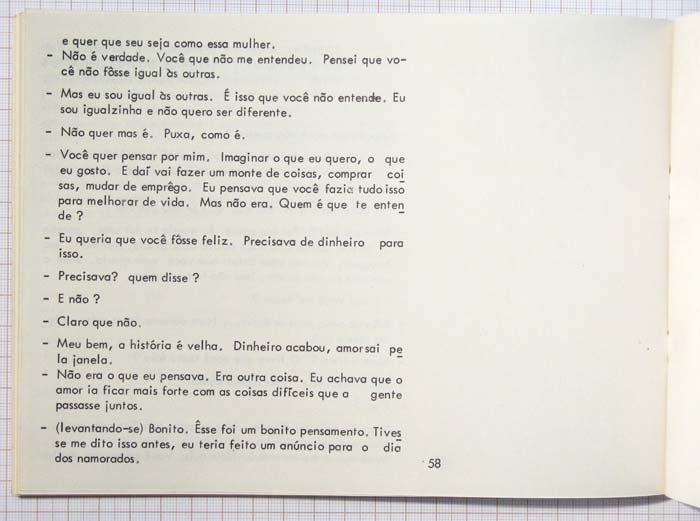 e quer que seu seja como essa mulher.
- Não é verdade. Você que não me entendeu. Pensei que vo-
cê não fôsse igual às outras.
- Mas eu sou igual às outras. É isso que você não entende. Eu
sou igualzinha e não quero ser diferente.
- Não quer mas é. Puxa, como é.
- Você quer pensar por mim. Imaginar o que eu quero, o que
eu gosto. E daí vai fazer um monte de coisas, comprar coi
sas, mudar de emprêgo. Eu pensava que você fazia tudo isso
para melhorar de vida. Mas não era. Quem é que te enten
de ?
- Eu queria que você fôsse feliz. Precisava de dinheiro para
isso.
- Precisava? quem disse ?
- E não ?
- Claro que não.
- Meu bem, a história é velha. Dinheiro acabou, amorsai pe
la janela.
- Não era o que eu pensava. Era outra coisa. Eu achava que o
amor ia ficar mais forte com as coisas difíceis que a gente
passasse juntos.
- (levantando-se) Bonito. Êsse foi um bonito pensamento. Tives
se me dito isso antes, eu teria feito um anúncio para o dia
dos namorados.
58